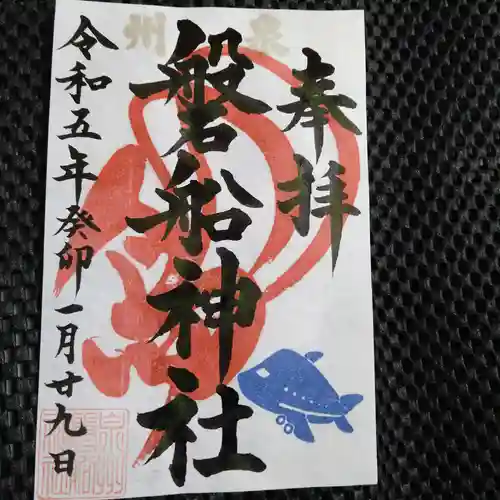 奉拝
泉州
磐船神社
令和五年癸卯一月廿九日